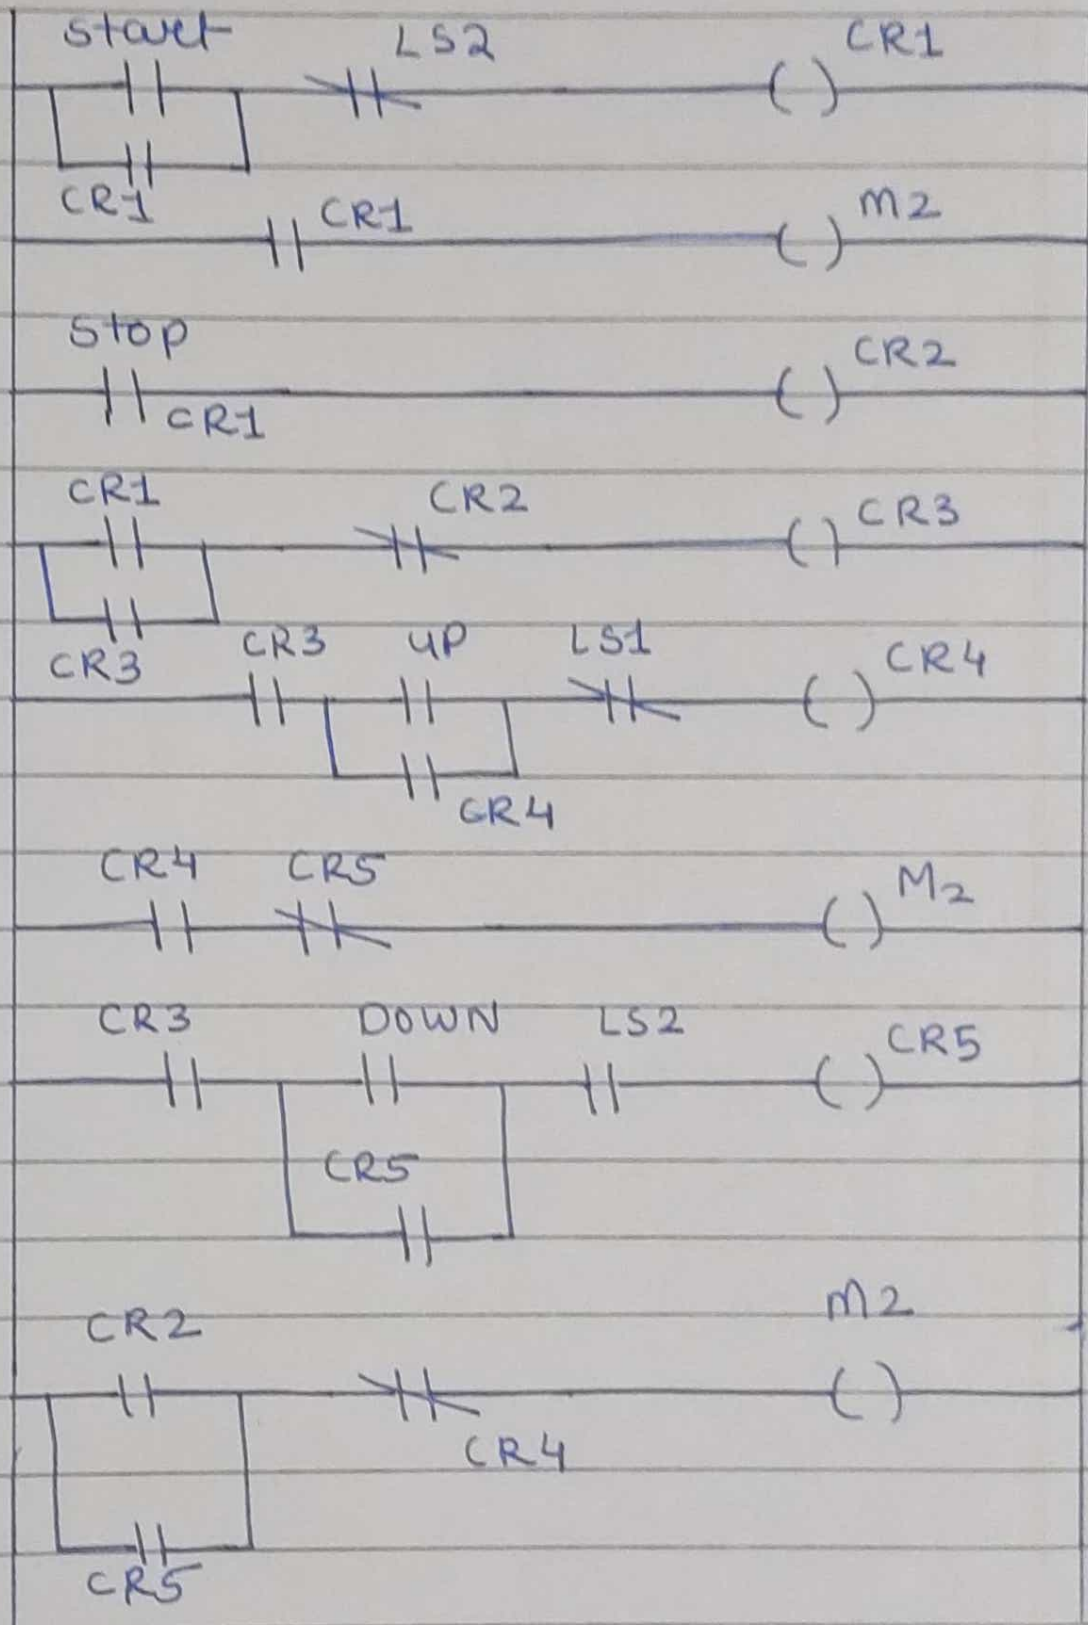 Start LS2 CR1
CR1 CR1 M2
Stop CR2
CR1
CR1 CR2 CR3
CR3 CR3 UP LS1 CR4
CR4
CR4 CR5 M2
CR3 DOWN LS2 CR5
CR5
CR2 M2
CR4
CR5